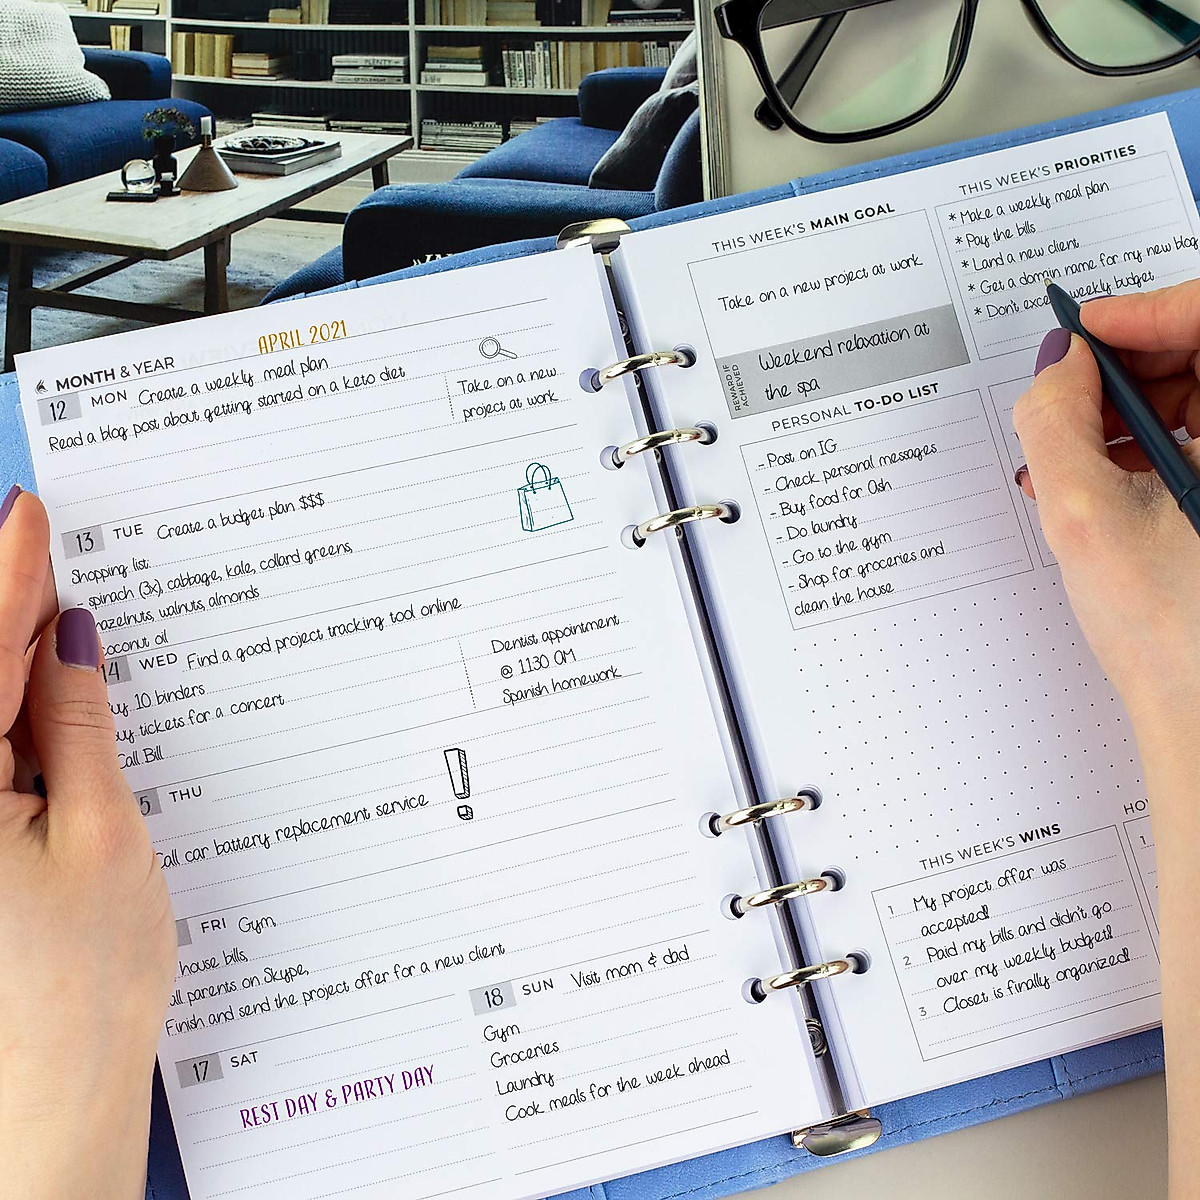 PLENTY
MONTH & YEAR APRIL 2021
12 MON Create a weekly meal plan
Read a blog post about getting started on a keto diet
Take on a new
project at work
13 TUE Create a budget plan $$$
Shopping list:
- spinach (3x), cabbage, kale, collard greens,
hazelnuts, walnuts, almonds
coconut oil
14 WED Find a good project tracking tool online
Buy 10 binders
Buy tickets for a concert
Call Bill
Dentist appointment
@ 11:30 AM
Spanish homework
5 THU
Call car battery replacement service !
FRI Gym,
house bills,
all parents on Skype,
Finish and send the project offer for a new client
17 SAT
REST DAY & PARTY DAY
18 SUN Visit mom & dad
Gym
Groceries
Laundry
Cook meals for the week ahead
THIS WEEK'S MAIN GOAL
Take on a new project at work
REWARD IF
ACHIEVED
Weekend relaxation at
the spa
THIS WEEK'S PRIORITIES
* Make a weekly meal plan
* Pay the bills
* Land a new client
* Get a domain name for my new blog
* Don't exceed weekly budget
PERSONAL TO-DO LIST
- Post on IG
- Check personal messages
- Buy food for Ash
- Do laundry
- Go to the gym
- Shop for groceries and
clean the house
THIS WEEK'S WINS
1 My project offer was
accepted!
2 Paid my bills and didn't go
over my weekly budget!
3 Closet is finally organized!
HO
1